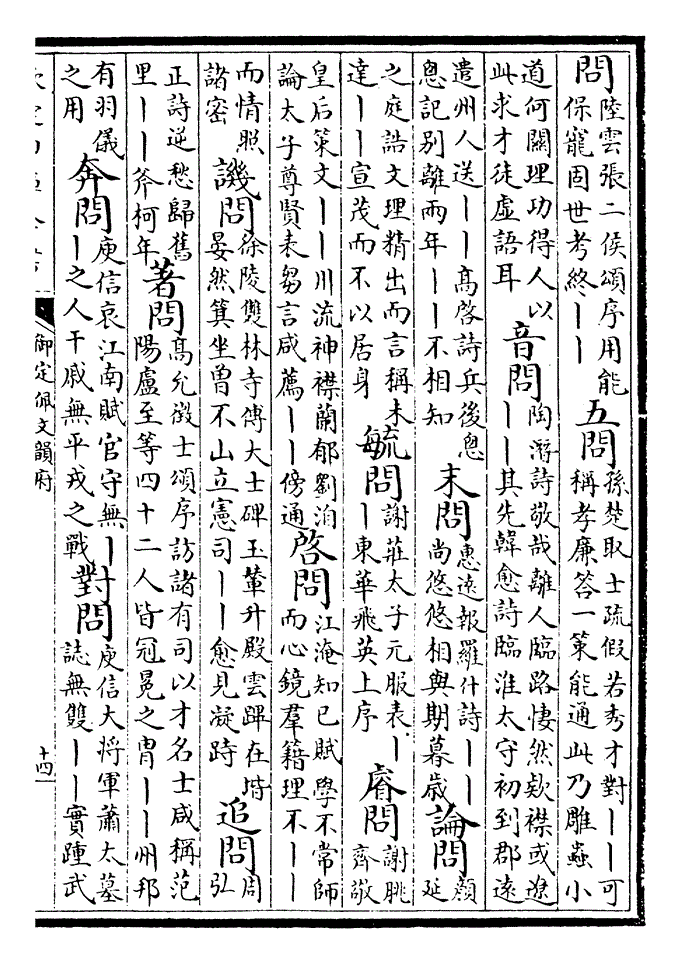 問陸雲張二侯頌序用能保寵固世考終丨丨五問孫楚取士疏假若秀才對丨丨可稱孝廉答一策能通此乃雕蟲小
道何關理功得人以此求才徒虛語耳音問陶潛詩敬哉離人臨路悽然欵襟或遼丨丨其先韓愈詩臨淮太守初到郡遠
遣州人送丨丨高啓詩兵後息恩記别離兩年丨丨不相知末問惠遠報羅什詩丨丨尚悠悠相與期暮歲論問顔延
之庭誥文理精出而言稱未達丨丨宣茂而不以居身毓問謝莊太子元服表丨丨東華飛英上序睿問謝朓齊敬
皇后策文丨丨川流神襟蘭郁劉洎論太子尊賢表芻言咸薦丨丨傍通啓問江淹知已賦學不常師而心鏡羣籍理不丨丨
而情照諸密譏問徐陵雙林寺傅大士碑玉輦升殿雲蹕在堦晏然箕坐曾不山立憲司丨丨愈見凝跱追問周弘
正詩逆愁歸舊里丨丨斧柯年著問高允徵士頌序訪諸有司以才名士咸稱范陽盧至等四十二人皆冠冕之胄丨丨州邦
有羽儀之用奔問庾信哀江南賦官守無丨丨之人干戚無平戎之戰對問庾信大将軍蕭太墓誌無雙丨丨實踵武
御定佩文韻府
十四